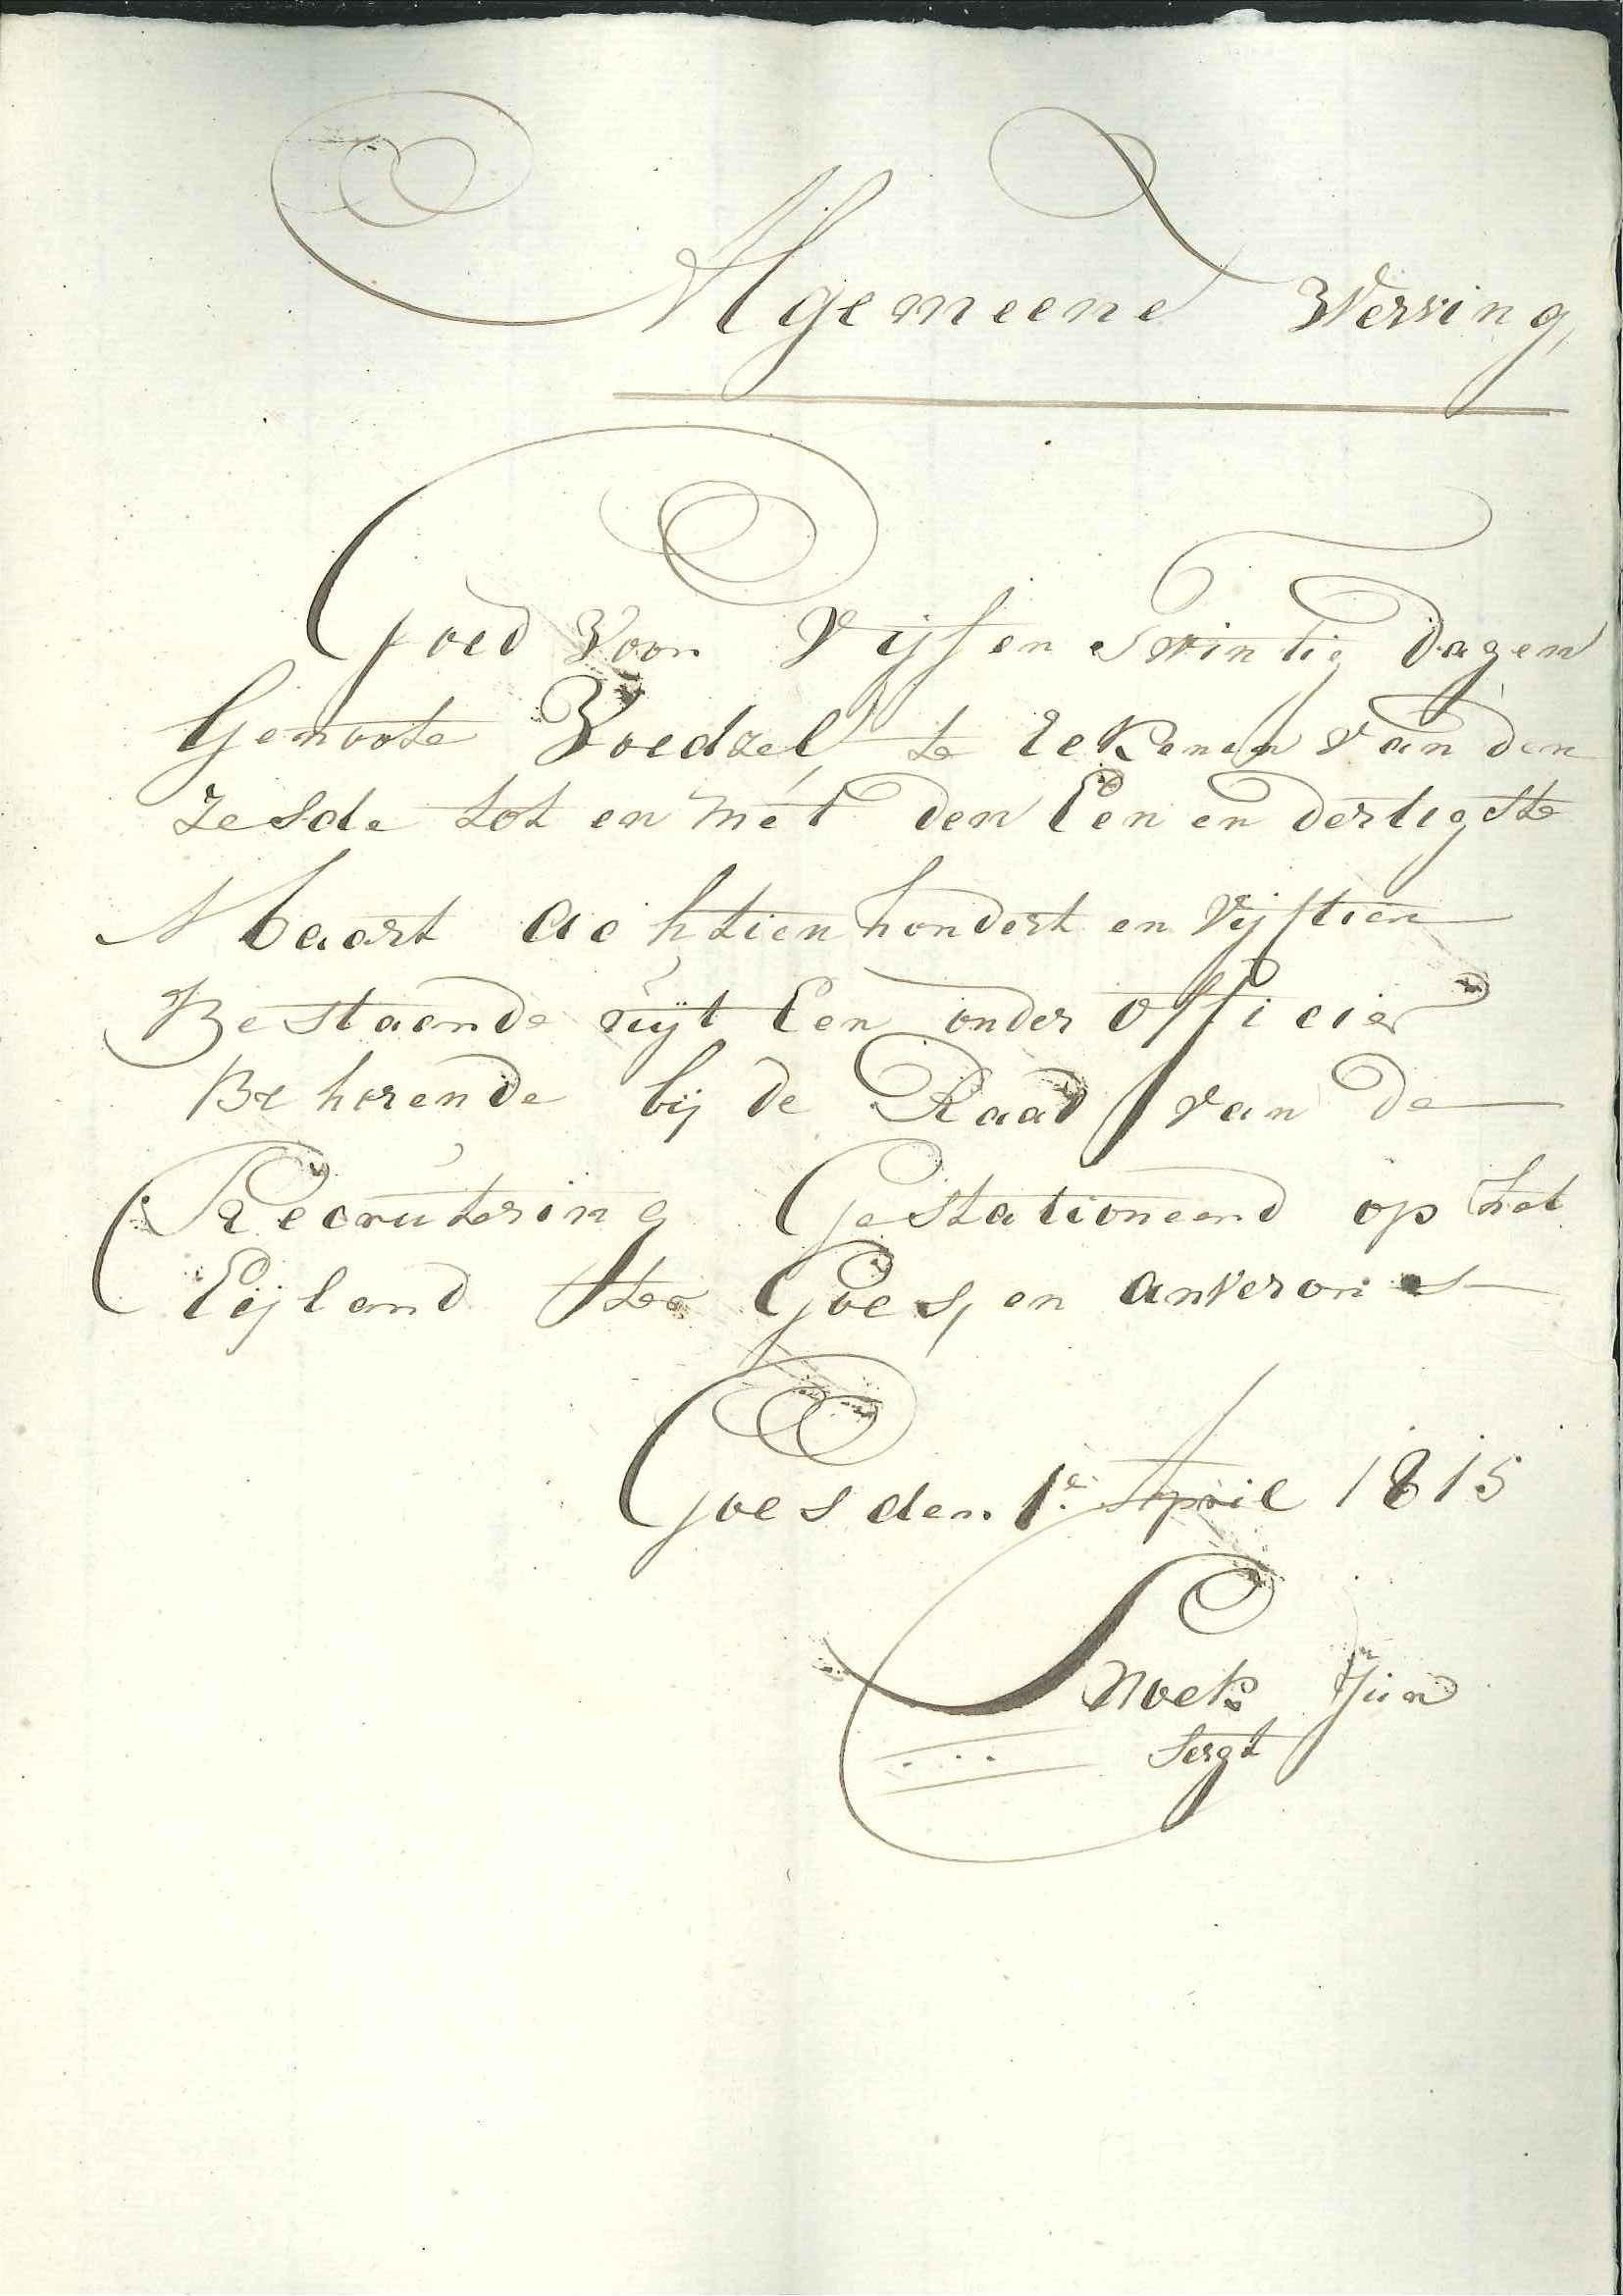 Algemeene Werving,
Goed voor Vijf en Twintig Dagen
Genoote Voedzel te Rekenen van den
zesde tot en met den Een en dertigste
Maart achtienhondert en Vijftien
Bestaande uÿt Een onder officier
Behorende bij de Raad van de
Recrutering Gestationeerd op het
Eijland ter Goes, en ankeron
Goes den 1e April 1815
Snoek Jun
Sergt